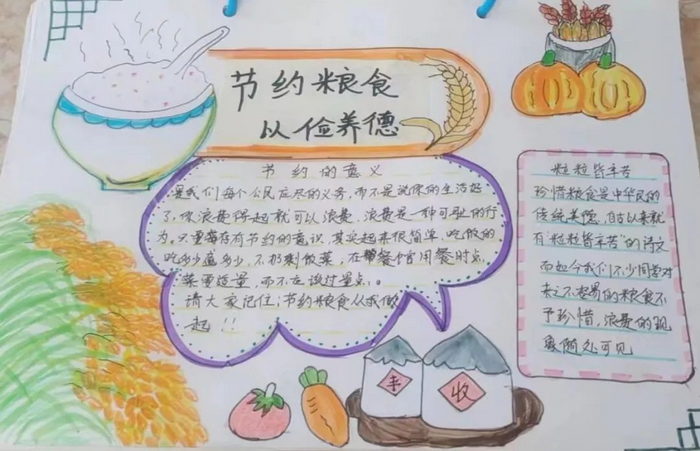 节约粮食
以俭养德
节约的意义
是我们每个公民应尽的义务,而不是说你的生活好
了,你浪费得起就可以浪费,浪费是一种可耻的行
为。只要存有节约的意识,其实起来很简单,吃饭时
吃多少盛多少,不扔剩饭菜,在餐馆用餐时点
菜要适量,而不应该过量点。
请大家记住:节约粮食从我做
起!!
粒粒皆辛苦
珍惜粮食是中华民的
传统美德,自古以来就
有"粒粒皆辛苦"的诗文
而如今我们不少同学对
来之不易的粮食不
予珍惜,浪费的现
象随处可见
丰
收